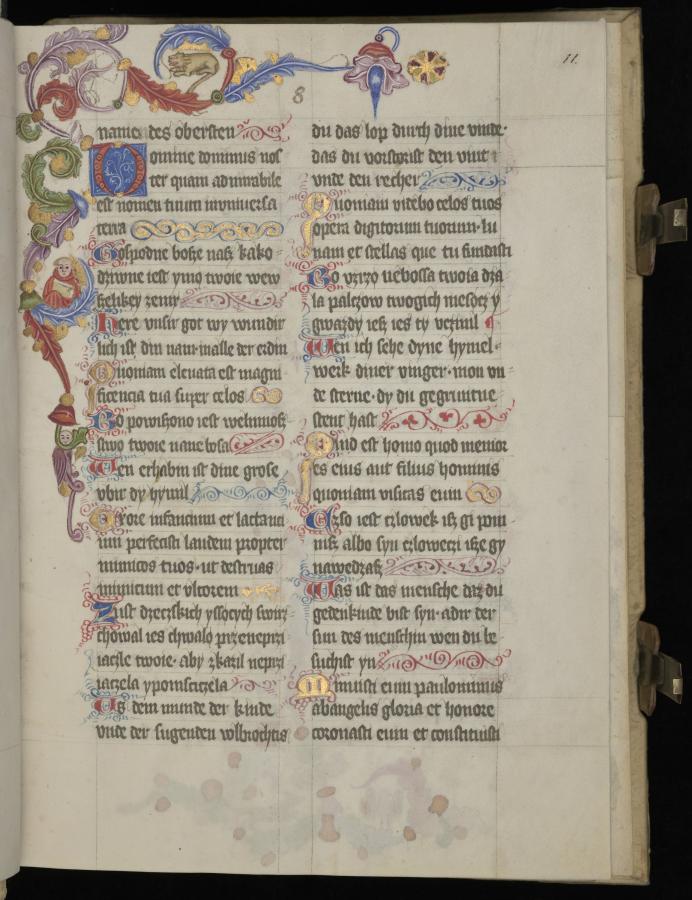 11.
8
namen des obersten
Domine dominus nos
ter quam admirabile
est nomen tuum in vniuersa
terra
Gospodne bosze nasz kako
dziwne iest ymo twoie wew
szelikey zemi
Here vnsir got wy wundir
lich ist din nam in alle der erdin
Quoniam eleuata est magni
ficencia tua super celos
Bo powiszono iest welmnosz
stwo twoie na nebosa
Wen erhabin ist dine grose
vbir dy hymil
Ex ore infancium et lactanci
um perfecisti laudem propter
inimicos tuos ut destruas
inimicum et vltorem
Z ust dzeczskich yssocych swirz
chowal ies chwalo prze neprzi
iacile twoie aby zkazil neprzi
iaczela y pomsciczela
Us dem munde der kinde
vnde der sugenden volbrochtis
du das lop durch dine vinde
das du vorstorist den vint
vnde den recher
Quoniam videbo celos tuos
opera digitorum tuorum lu
nam et stellas que tu fundasti
Bo vzrzo nebossa twoia dza
la palczow twogich mesocz y
gwazdy iesz ies ty vczinil
Wen ich sehe dyne hymel
werk diner vinger mon vn
de sterne dy du gegruntue
stent hast
Quid est homo quod memor
es eius aut filius hominis
quoniam visitas eum
Czso iest czlowek isz gi pom
nisz albo syn czloweczi isze gy
nawedzasz
Was ist das mensche daz du
gedenkinde bist syn adir der
sun des menschin wen du be
suchist yn
Minuisti eum paulominus
ab angelis gloria et honore
coronasti eum et constituisti